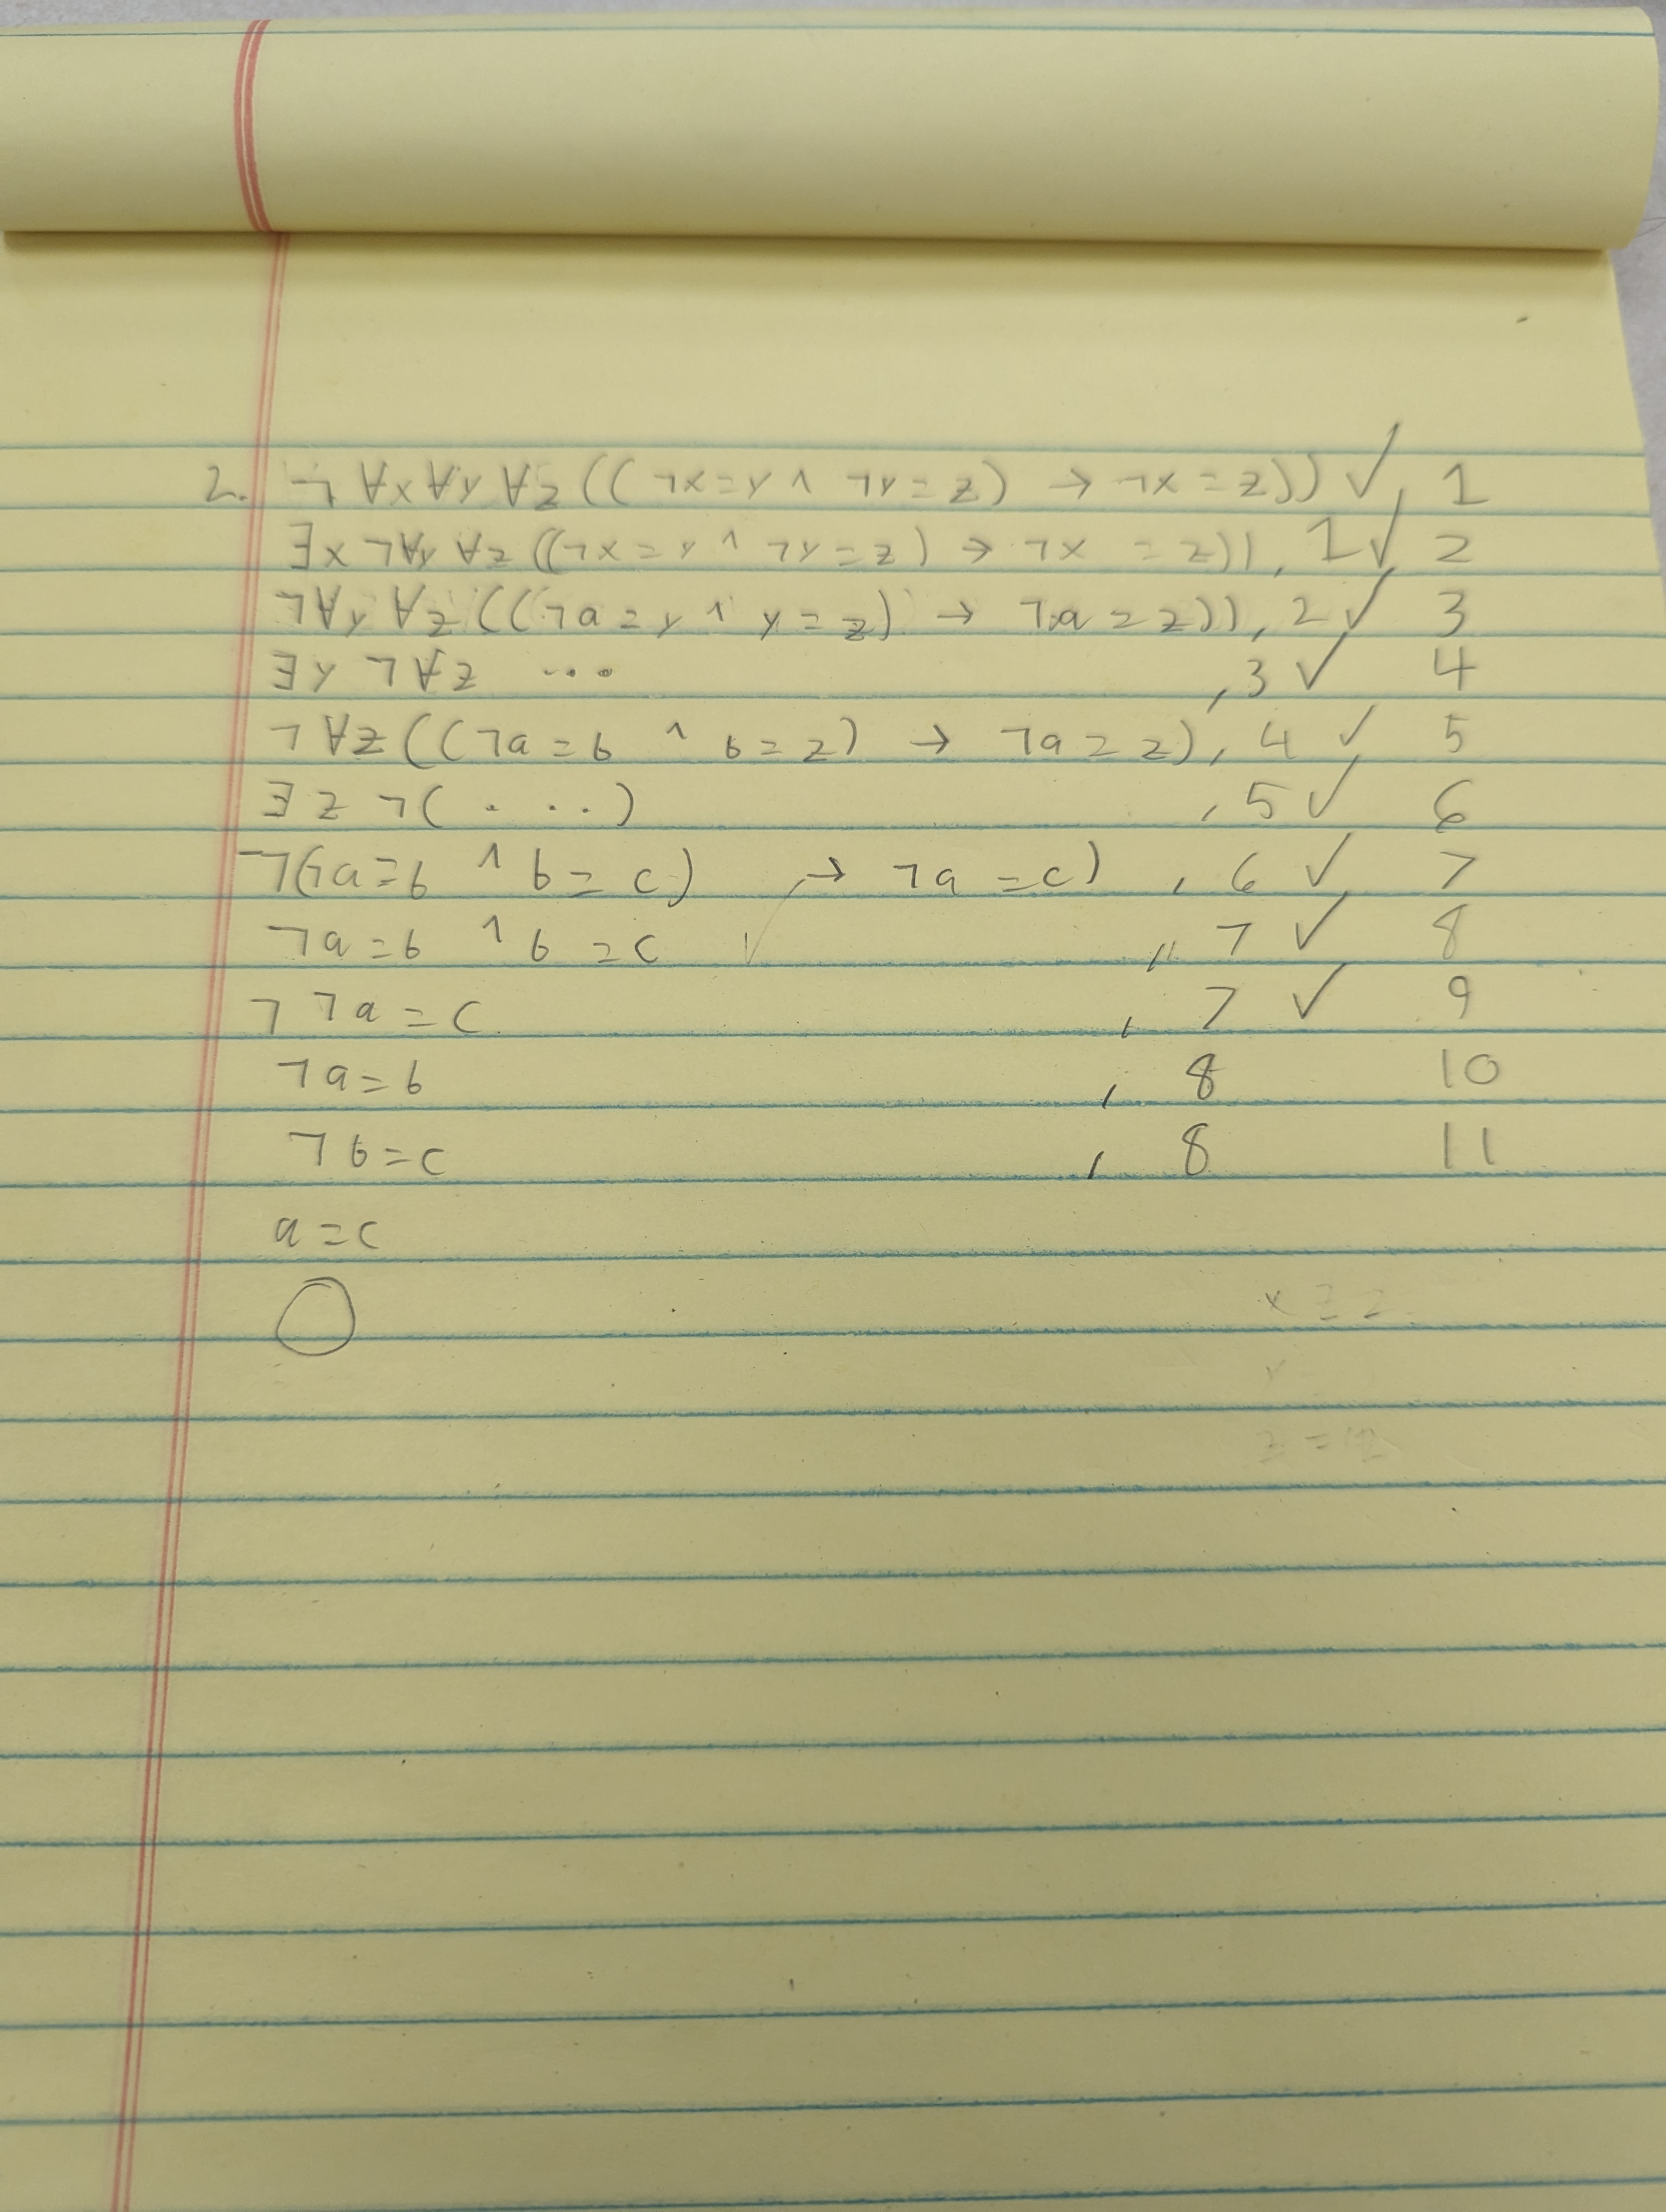 2. ¬∀x∀y∀z((¬x=y ∧ ¬y=z) → ¬x=z)) ✓, 1
∃x¬∀y∀z((¬x=y ∧ ¬y=z) → ¬x = z)), 1✓ 2
¬∀y∀z((¬a=y ∧ y=z) → ¬a=z)), 2✓ 3
∃y¬∀z ... , 3✓ 4
¬∀z((¬a=b ∧ b=z) → ¬a=z), 4✓ 5
∃z¬(...) , 5✓ 6
¬(¬a=b ∧ b=c) → ¬a=c) , 6✓ 7
¬a=b ∧ b=c ✓ ,, 7✓ 8
¬¬a=c , 7✓ 9
¬a=b , 8 10
¬b=c , 8 11
a=c